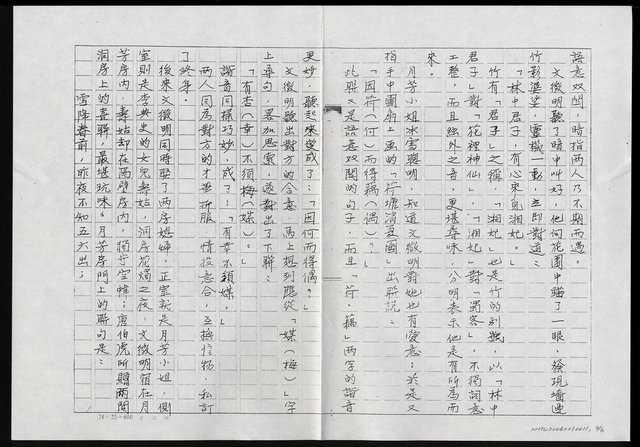 語意双関，暗指兩人乃不期而遇。
文徵明聽了暗中叫好，他向花園中瞄了一眼，發現墻邊
竹影婆娑，靈機一動，立即對道：
「林中君子，有心來覓湘妃。」
竹有「君子」之稱，「湘妃」也是竹的別號，以「林中
君子」對「花裡神仙」，「湘妃」對「蜀客」，不獨詞意
工整，而且絃外之音，更堪尋味，分明表示他是有所為而
來。
月芳小姐冰雪聰明，知道文徵明對她也有愛意；於是又
指手中團扇上畫的「荷塘消夏圖」出聯說：
「因荷（何）而得藕（偶）？」
此聯又是語意双関的句子，而且「荷、藕」两字的諧音
更妙，聽起來變成了：「因何而得偶？」
文徵明聽出對方的含意，馬上想到應從「媒（梅）」字
上奉句，畧加思索，遂對出了下聯：
「有杏（幸）不須梅（媒）。」
諧音同樣巧妙，成了：「有幸不須媒。」
两人同為對方的才華折服，情投意合，互換信物，私訂
了終身。
後來文徵明同時娶了两房媳婦，正室就是月芳小姐，側
室則是李典史的女兒壽姑，洞房花燭之夜，文徵明宿在月
芳房內，壽姑却在隔壁房內，獨守空幃；唐伯虎所贈两間
洞房上的喜聯，最堪玩味。月芳房門上的聯句是：
雪陣春前，昨夜不知五六出；
24×25=600